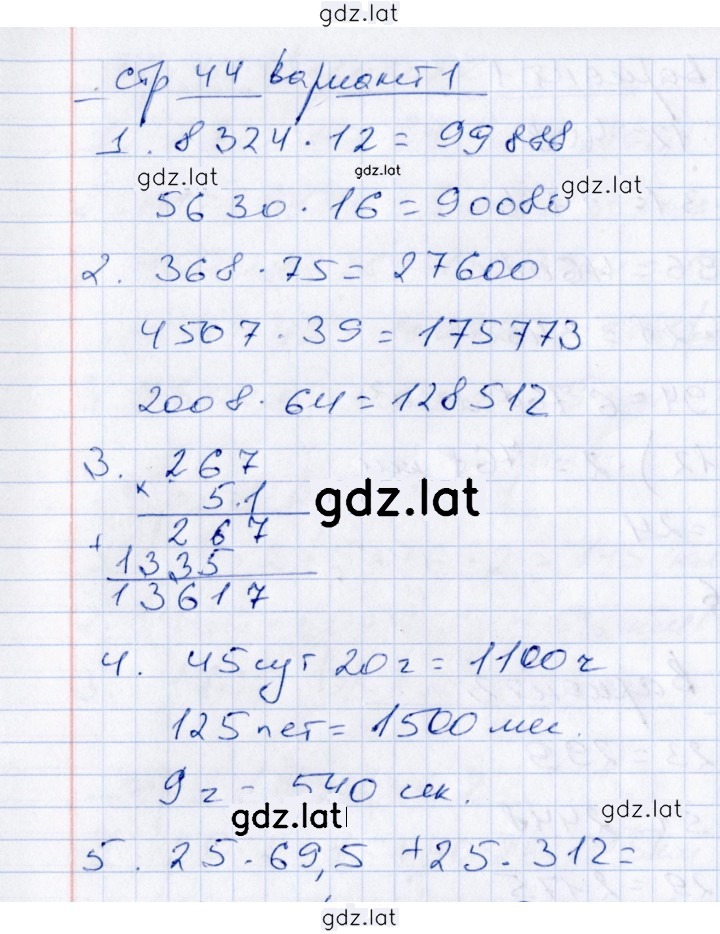 gdz.lat
стр 44 Вариант 1
1. 8324 · 12 = 99888
gdz.lat gdz.lat gdz.lat
5630 · 16 = 90080
2. 368 · 75 = 27600
4507 · 39 = 175773
2008 · 64 = 128512
3. 267
× 51
gdz.lat
267
+ 1335
13617
4. 45 сут 20 ч = 1100 ч
125 лет = 1500 мес.
9 ч - 540 сек.
gdz.lat gdz.lat
5. 25 · 69,5 + 25 · 312 =
gdz.lat